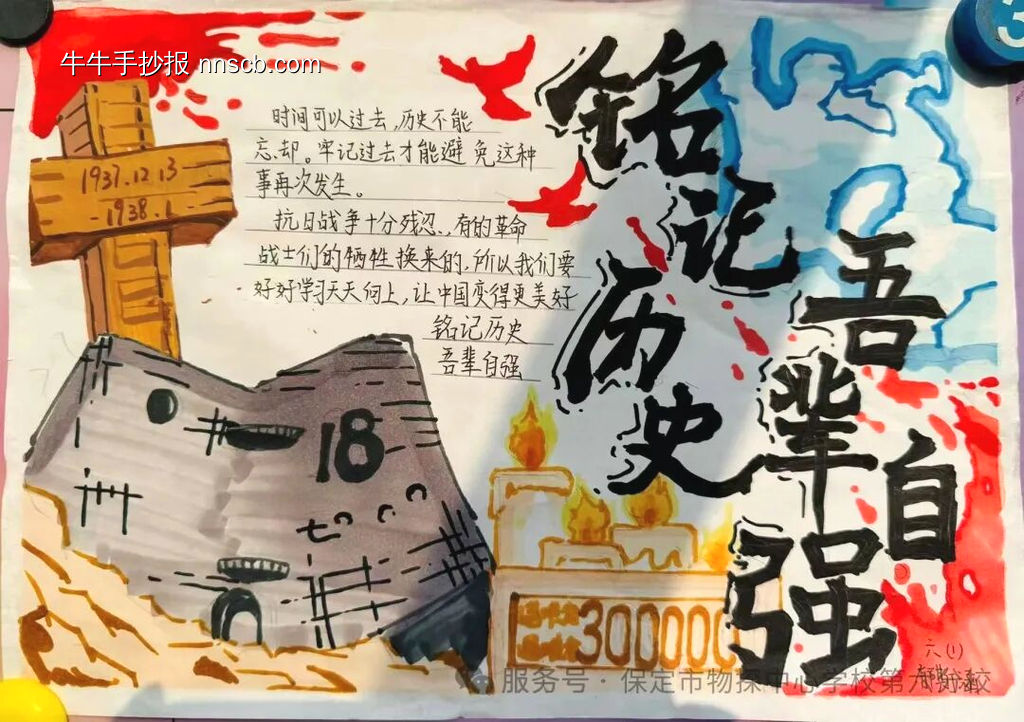 牛牛手抄报 nnscb.com
1937.12.13
1938.1
时间可以过去，历史不能
忘却。牢记过去才能避免这种
事再次发生。
抗日战争十分残忍，有的革命
战士们的牺牲换来的，所以我们要
好好学习天天向上，让中国变得更美好
铭记历史
吾辈自强
铭记历史
吾辈自强
18
300000
六(1)
服务号·保定市物探中心学校第六分校